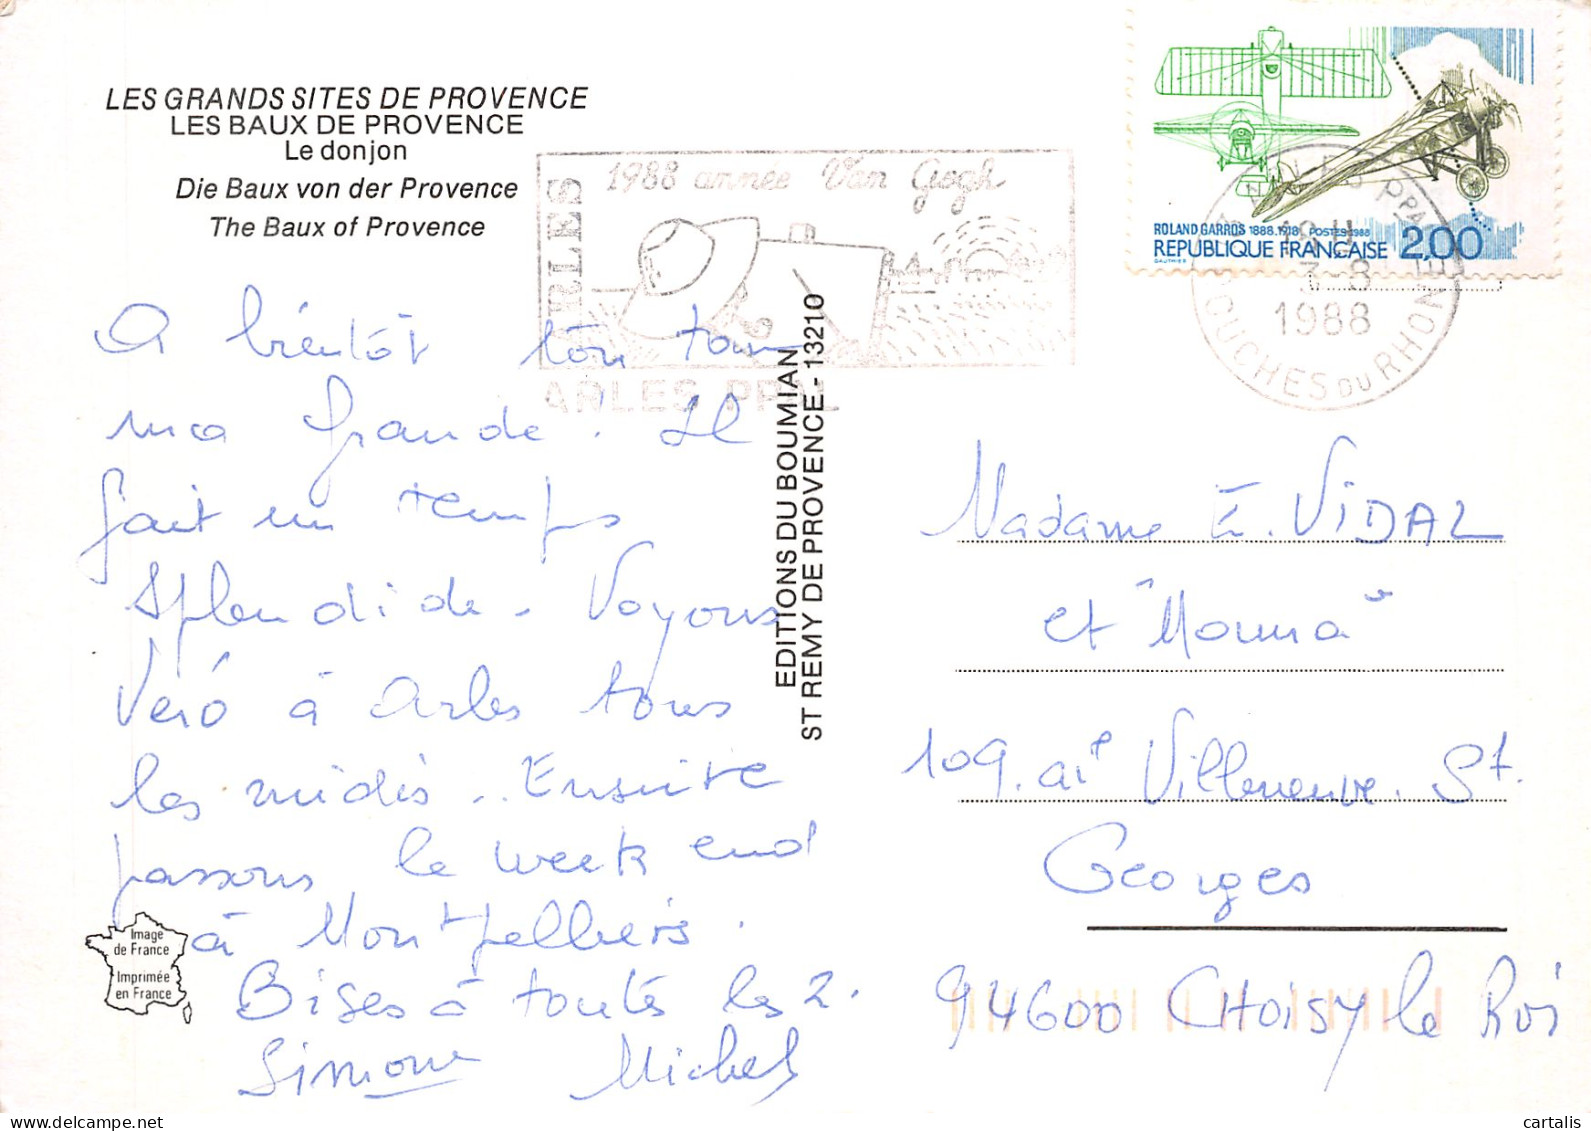 LES GRANDS SITES DE PROVENCE
LES BAUX DE PROVENCE
Le donjon
Die Baux von der Provence
The Baux of Provence
ARLES
1988 année Van Gogh
ARLES PPAL
ROLAND GARROS 1888.1918 POSTES 1988
REPUBLIQUE FRANÇAISE 2,00
GAUTHIER
ARLES PPAL
3-8
1988
BOUCHES DU RHONE
EDITIONS DU BOUMIAN
ST REMY DE PROVENCE - 13210
A bientôt ton tour
ma grande. Il
fait un temps
splendide. Voyons
Véro à Arles tous
les midis. Ensuite
passons le week end
à Montpelliers.
Bises à toutes les 2.
Simone Michel
Image
de France
Imprimée
en France
Madame E. VIDAL
et "Mouna"
109. av Villeneuve. St.
Georges
94600 CHOISY le Roi
cartalis